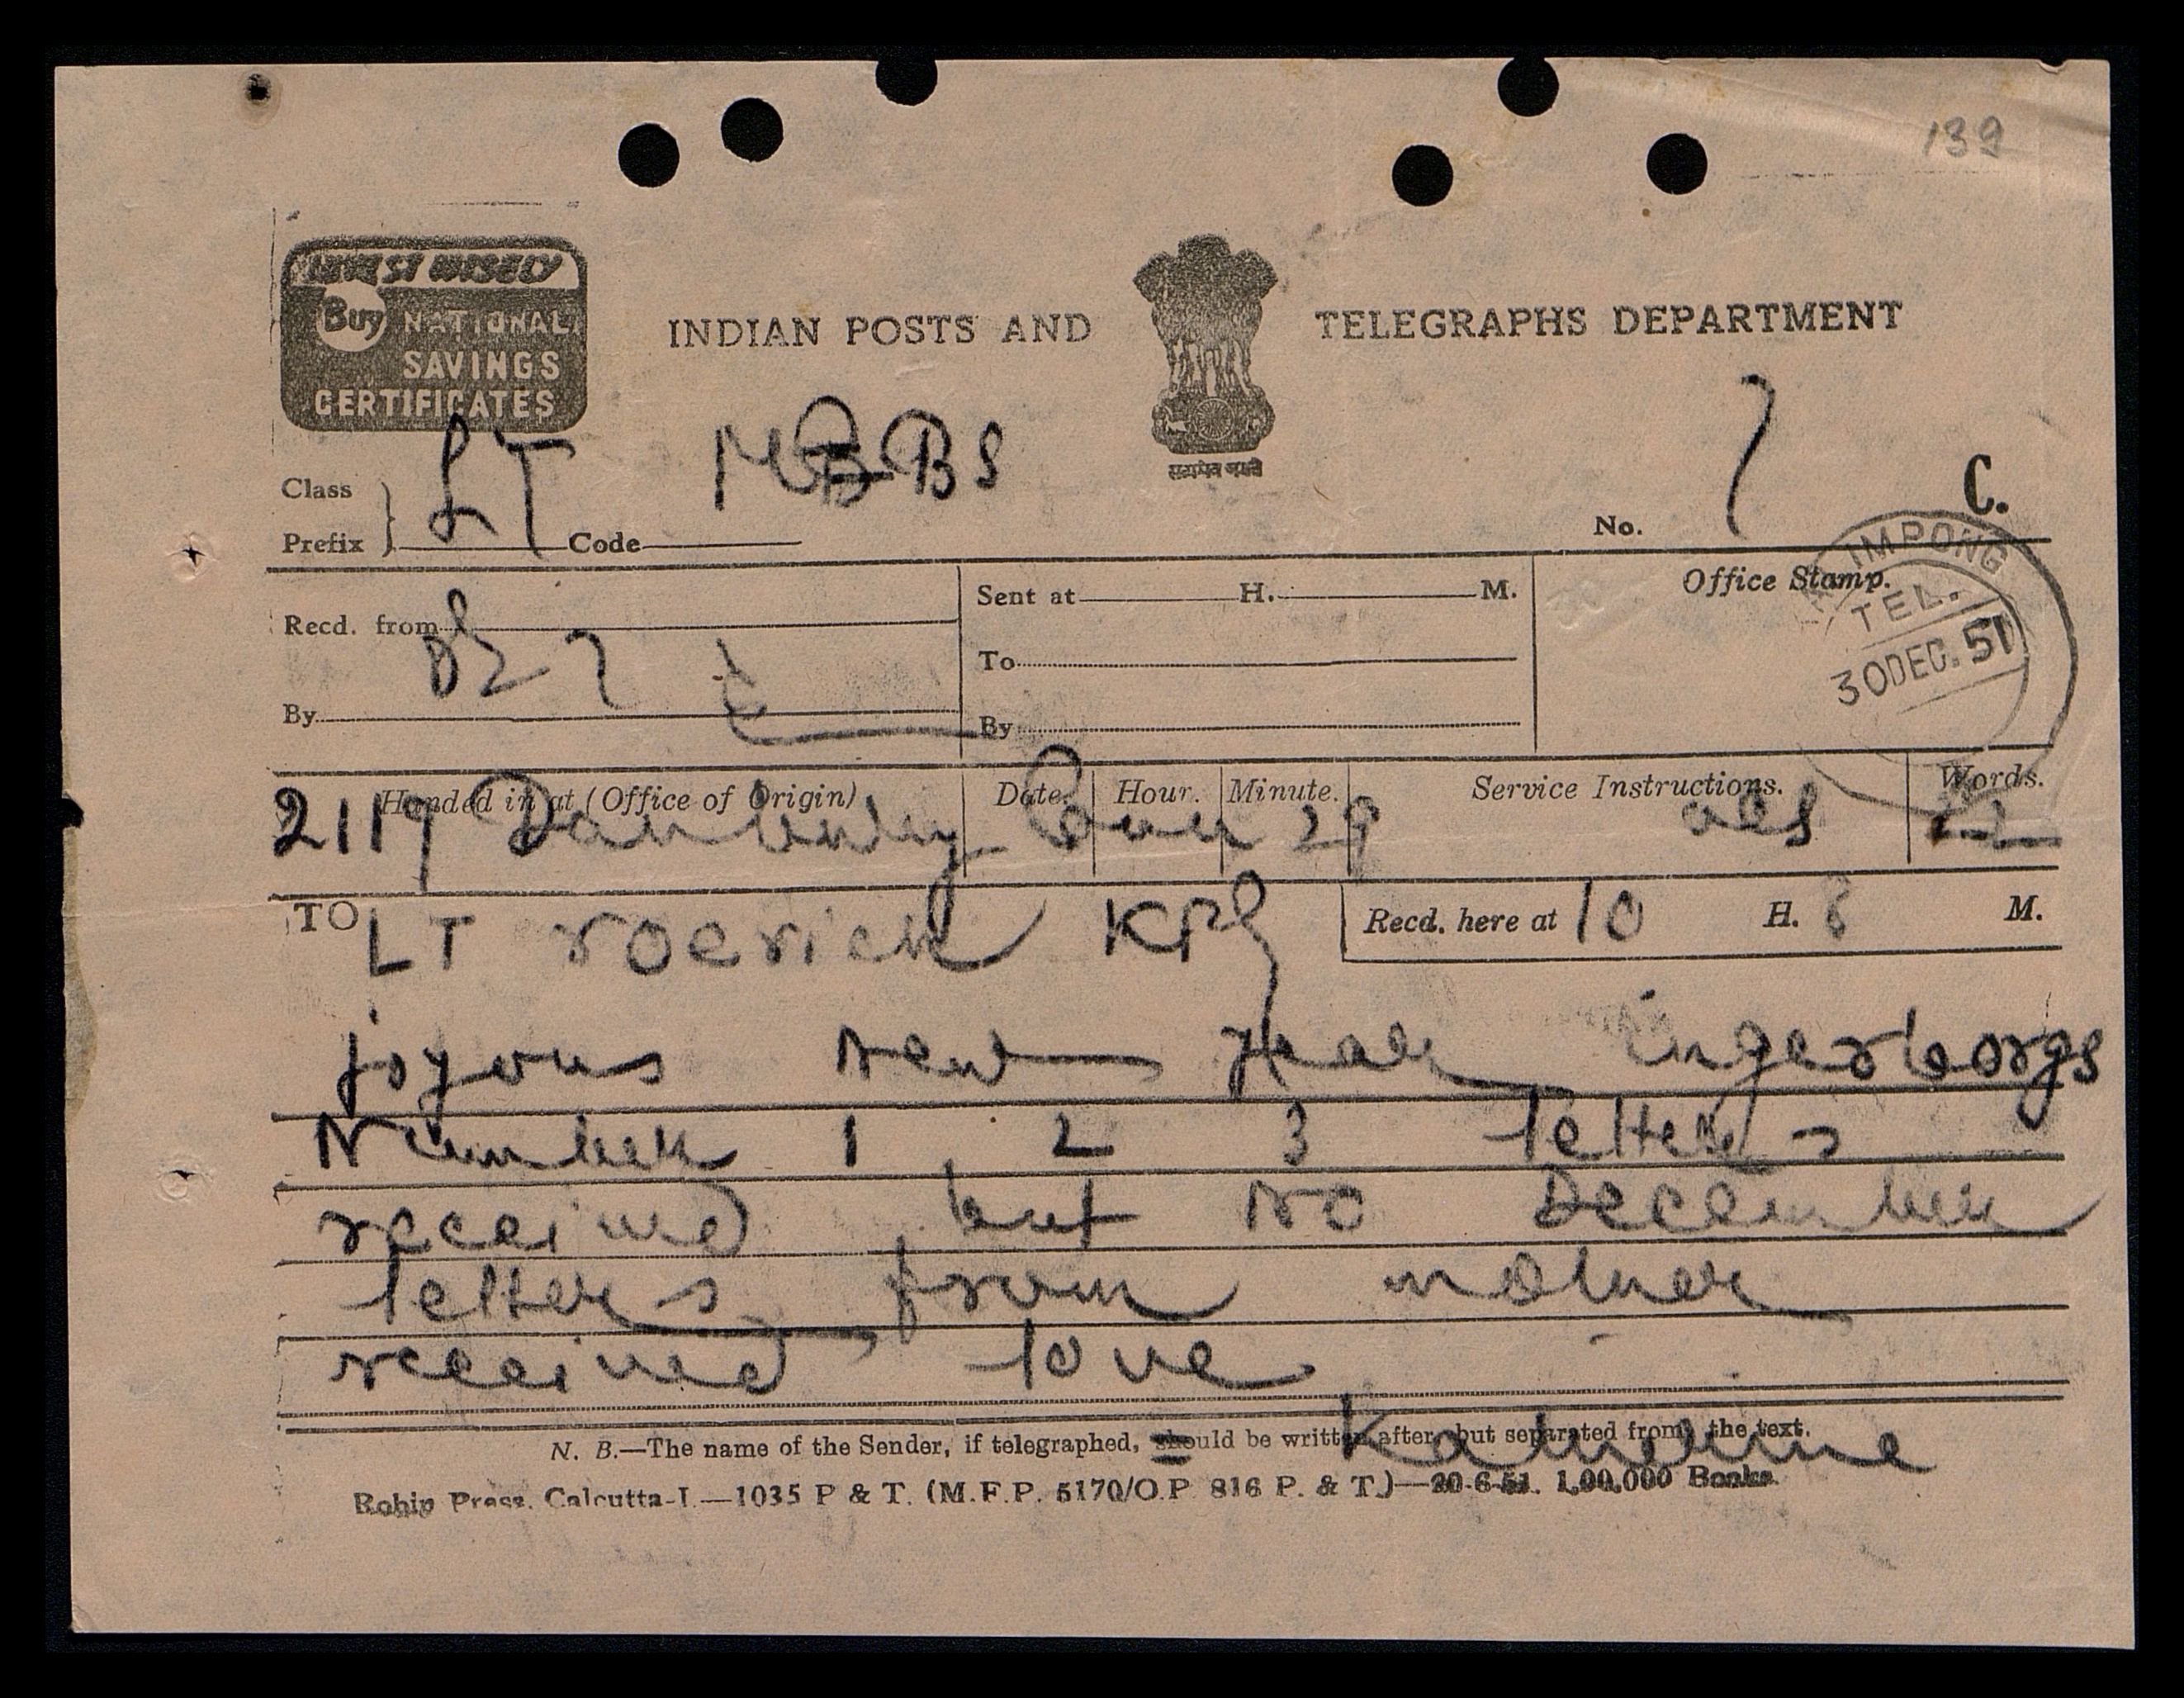 139
INVEST WISELY
Buy NATIONAL
SAVINGS
CERTIFICATES
INDIAN POSTS AND TELEGRAPHS DEPARTMENT
सत्यमेव जयते
C.
Class
Prefix } LT Code
No. 7
KALIMPONG
TEL.
30 DEC. 51
Recd. from
By
Sent at H. M.
To
By
Office Stamp.
Handed in at (Office of Origin). Date. Hour. Minute. Service Instructions. Words.
2119 Danbury Conn 29 22
TO LT roerich KPG Recd. here at 10 H. 8 M.
joyous New Year ingerborgs
Number 1 2 3 letters
received but no December
letters from mother
received love
Katherine
N. B.—The name of the Sender, if telegraphed, should be written after, but separated from, the text.
Robin Press, Calcutta-I.—1035 P & T. (M.F.P. 5170/O.P 816 P. & T.)—20-6-51. 1,00,000 Books.